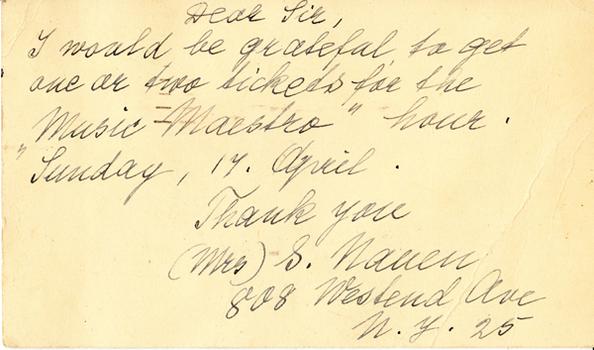 Dear Sir,
I would be grateful to get
one or two tickets for the
"Music-Maestro" hour.
Sunday, 17. April.
Thank you
(Mrs) S. Nauen
808 Westend Ave
N.Y. 25